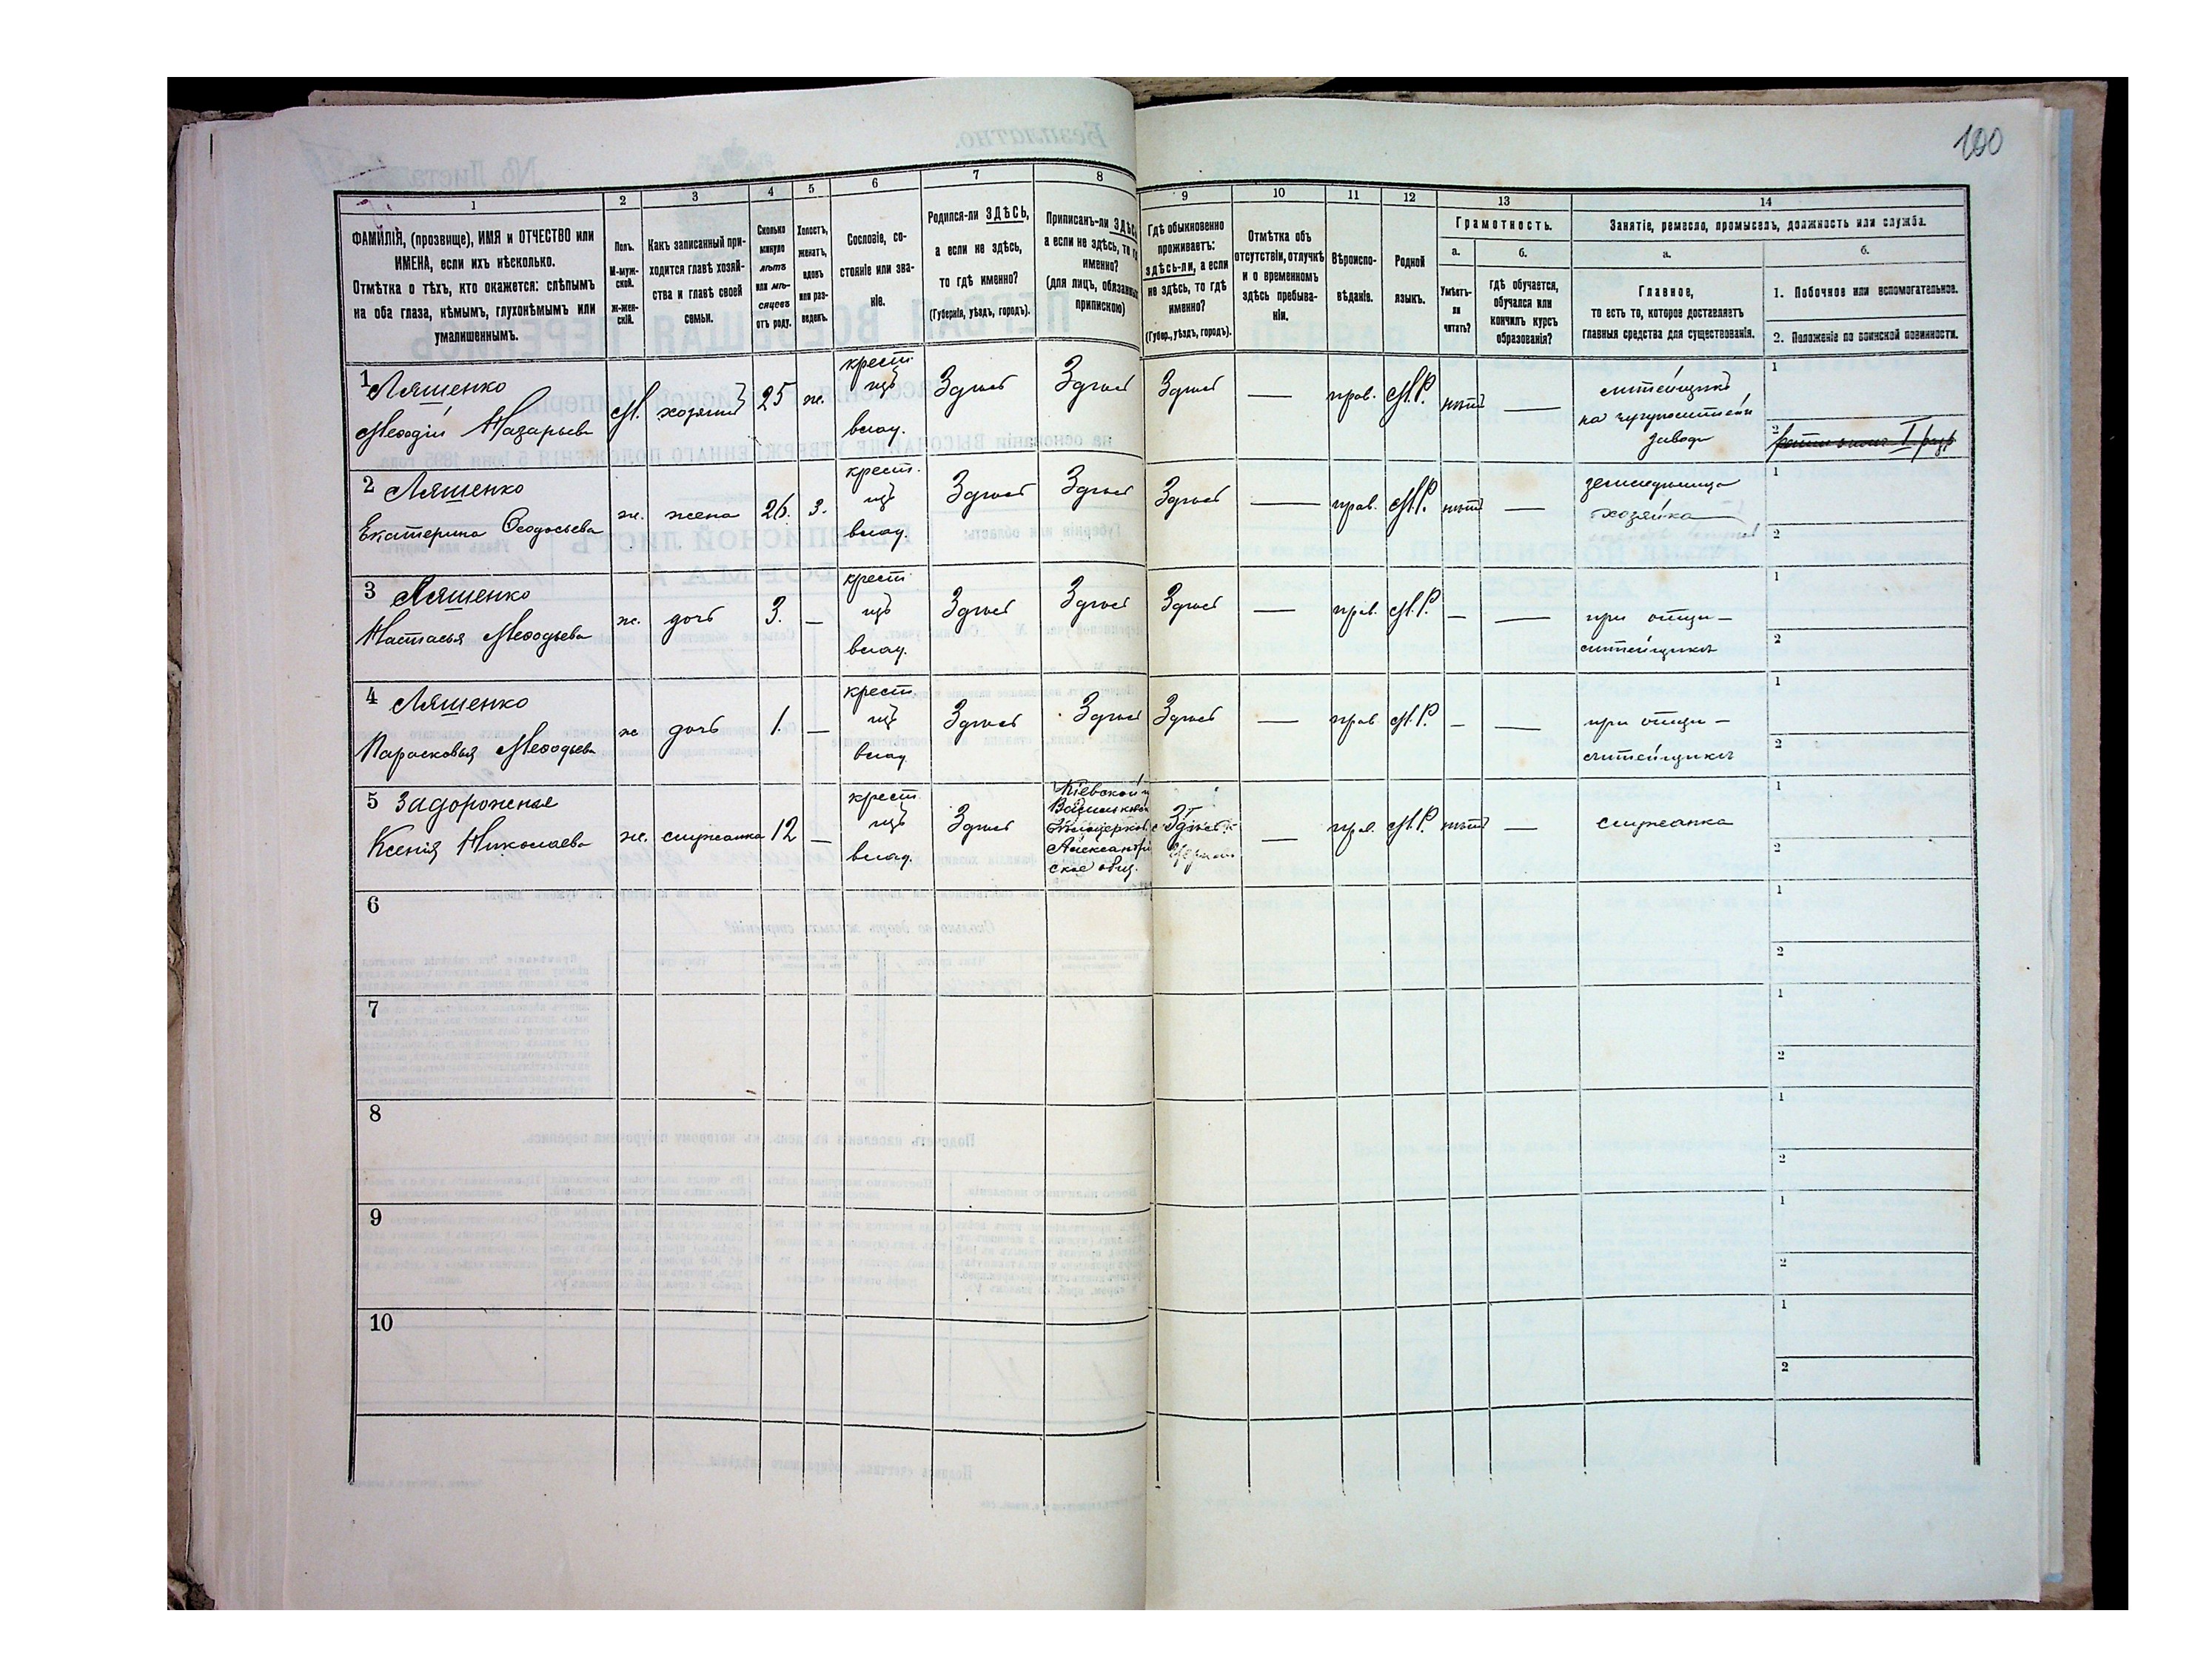 100
1
ФАМИЛІЯ, (прозвище), ИМЯ и ОТЧЕСТВО или
ИМЕНА, если ихъ нѣсколько.
Отмѣтка о тѣхъ, кто окажется: слѣпымъ
на оба глаза, нѣмымъ, глухонѣмымъ или
умалишеннымъ.
2
Полъ.
М-муж-
ской.
Ж-жен-
скій.
3
Какъ записанный при-
ходится главѣ хозяй-
ства и главѣ своей
семьи.
4
Сколько
минуло
лѣтъ
или мѣ-
сяцевъ
отъ роду.
5
Холостъ,
женатъ,
вдовъ
или раз-
веденъ.
6
Сословіе, со-
стояніе или зва-
ніе.
7
Родился-ли ЗДѢСЬ,
а если не здѣсь,
то гдѣ именно?
(Губернія, уѣздъ, городъ).
8
Приписанъ-ли ЗДѢСЬ
а если не здѣсь, то гд
именно?
(для лицъ, обязанны
припискою)
9
Гдѣ обыкновенно
проживаетъ:
здѣсь-ли, а если
не здѣсь, то гдѣ
именно?
(Губер., уѣздъ, городъ).
10
Отмѣтка объ
отсутствіи, отлучкѣ
и о временномъ
здѣсь пребыва-
ніи.
11
Вѣроиспо-
вѣданіе.
12
Родной
языкъ.
13
Грамотность.
а.
Умѣетъ-
ли
читать?
б.
гдѣ обучается,
обучался или
кончилъ курсъ
образованія?
14
Занятіе, ремесло, промыселъ, должность или служба.
а.
Главное,
то есть то, которое доставляетъ
главныя средства для существованія.
б.
1. Побочное или вспомогательное.
2. Положеніе по воинской повинности.
1 Ляшенко
Меѳодій Назарьевъ
М. хозяинъ 25 ж.
крест.
изъ
влад.
Здѣсь Здѣсь Здѣсь — прав. М.Р. нѣтъ —
литейщикъ
на чугунолитейн
заводѣ
1
2
2 Ляшенко
Екатерина Ѳеодосьева
ж. жена 26. з.
крест.
изъ
влад.
Здѣсь Здѣсь Здѣсь — прав. М.Р. нѣтъ —
хозяйка
1
2
3 Ляшенко
Настасья Меѳодьева
ж. дочь 3. —
крест.
изъ
влад.
Здѣсь Здѣсь Здѣсь — прав. М.Р. — —
при отцѣ —
литейщикѣ
1
2
4 Ляшенко
Парасковья Меѳодьева
ж дочь 1. —
крест.
изъ
влад.
Здѣсь Здѣсь Здѣсь — прав М.Р. — —
при отцѣ —
литейщикѣ
1
2
5 Задорожная
Ксенія Николаева
ж. служанка 12 —
крест.
изъ
влад.
Здѣсь
Кіевской
Александрій
ское общ.
Здѣсь
— прав. М.Р. нѣтъ —
служанка
1
2
6
1
2
7
1
2
8
1
2
9
1
2
10
1
2